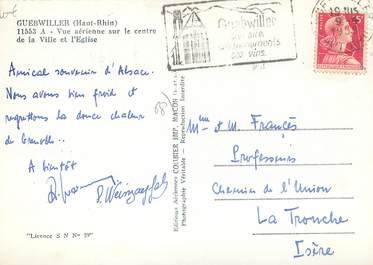 GUEBWILLER (Haut-Rhin)
11553 A - Vue aérienne sur le centre
de la Ville et l'Eglise
Amical souvenir d'Alsace.
Nous avons bien froid et
regrettons la douce chaleur
de Grenoble..
A bientôt
"Licence S N No 29"
Editions Aériennes COMBIER IMP. MACON
Photographie Véritable - Reproduction Interdite
Guebwiller
ses vins
Mme et M. Françès
Professeurs
Chemin de l'Union
La Tronche
Isère